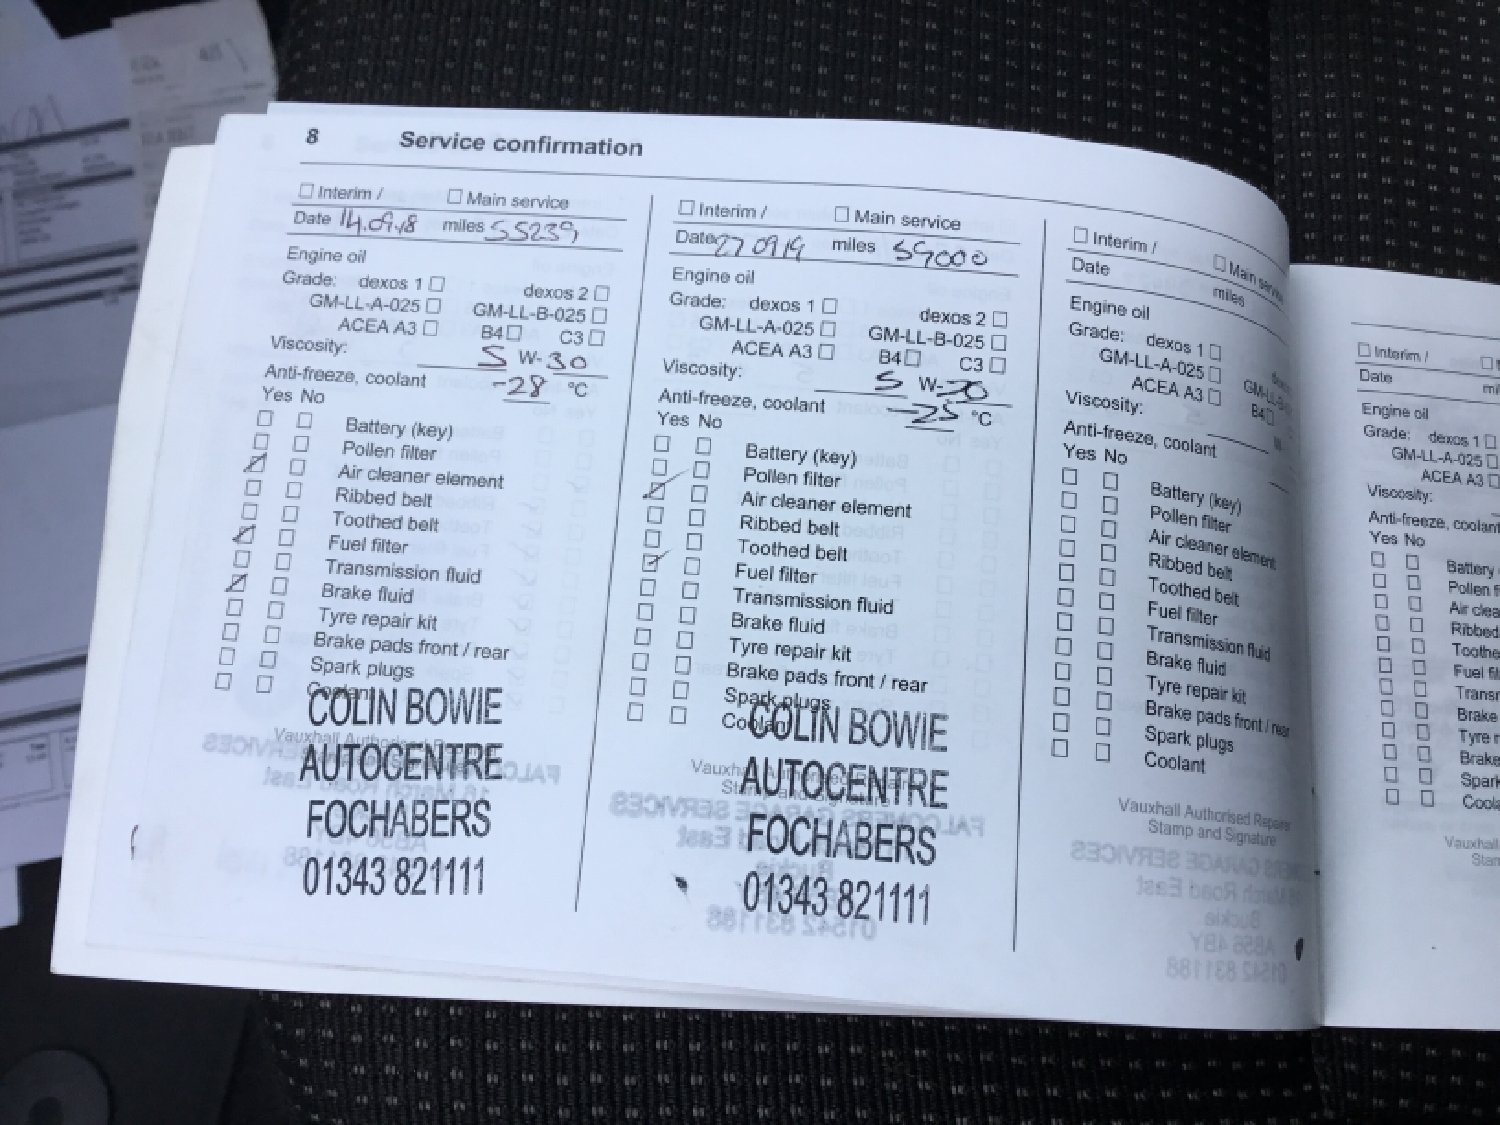 8 Service confirmation
Interim / Main service
Date 14.09.18 miles 55239
Engine oil
Grade: dexos 1 dexos 2
GM-LL-A-025 GM-LL-B-025
ACEA A3 B4 C3
Viscosity: 5 W-30
Anti-freeze, coolant -28 °C
Yes No
Battery (key)
Pollen filter
Air cleaner element
Ribbed belt
Toothed belt
Fuel filter
Transmission fluid
Brake fluid
Tyre repair kit
Brake pads front / rear
Spark plugs
Coolant
Vauxhall Authorised
COLIN BOWIE
AUTOCENTRE
FOCHABERS
01343 821111
Interim / Main service
Date 27 09 19 miles 59000
Engine oil
Grade: dexos 1 dexos 2
GM-LL-A-025 GM-LL-B-025
ACEA A3 B4 C3
Viscosity: 5 W-30
Anti-freeze, coolant -25 °C
Yes No
Battery (key)
Pollen filter
Air cleaner element
Ribbed belt
Toothed belt
Fuel filter
Transmission fluid
Brake fluid
Tyre repair kit
Brake pads front / rear
Spark plugs
Coolant
Vauxhall Authorised
Stamp and Signature
COLIN BOWIE
AUTOCENTRE
FOCHABERS
01343 821111
Interim / Main service
Date miles
Engine oil
Grade: dexos 1
GM-LL-A-025
ACEA A3 B4
Viscosity: W-
Anti-freeze, coolant
Yes No
Battery (key)
Pollen filter
Air cleaner element
Ribbed belt
Toothed belt
Fuel filter
Transmission fluid
Brake fluid
Tyre repair kit
Brake pads front / rear
Spark plugs
Coolant
Vauxhall Authorised Repairer
Stamp and Signature
Interim /
Date
Engine oil
Grade: dexos 1
GM-LL-A-025
ACEA A3
Viscosity:
Anti-freeze, coolant
Yes No
Battery
Pollen
Air
Ribbed
Fuel
Brake
Tyre
Brake
Spark
Vauxhall